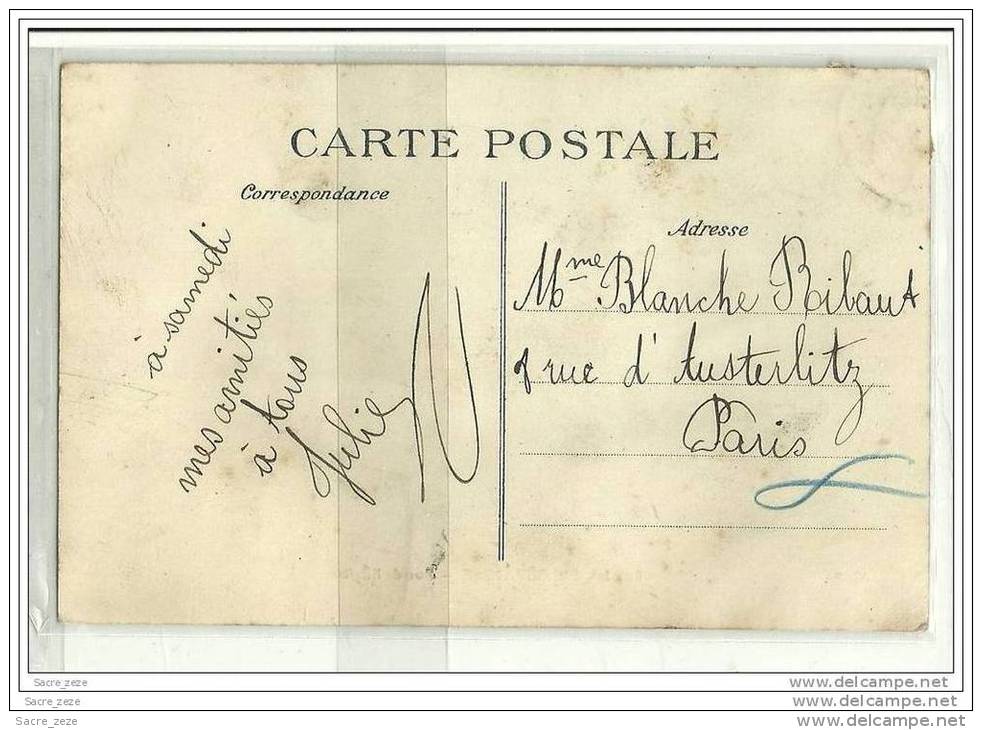 CARTE POSTALE
Correspondance
à samedi
mes amitiés
à tous
Julie
Adresse
Mme Blanche Ribaut
rue d'Austerlitz
Paris
Sacre_zeze
www.delcampe.net
Sacre_zeze
www.delcampe.net
Sacre_zeze
www.delcampe.net